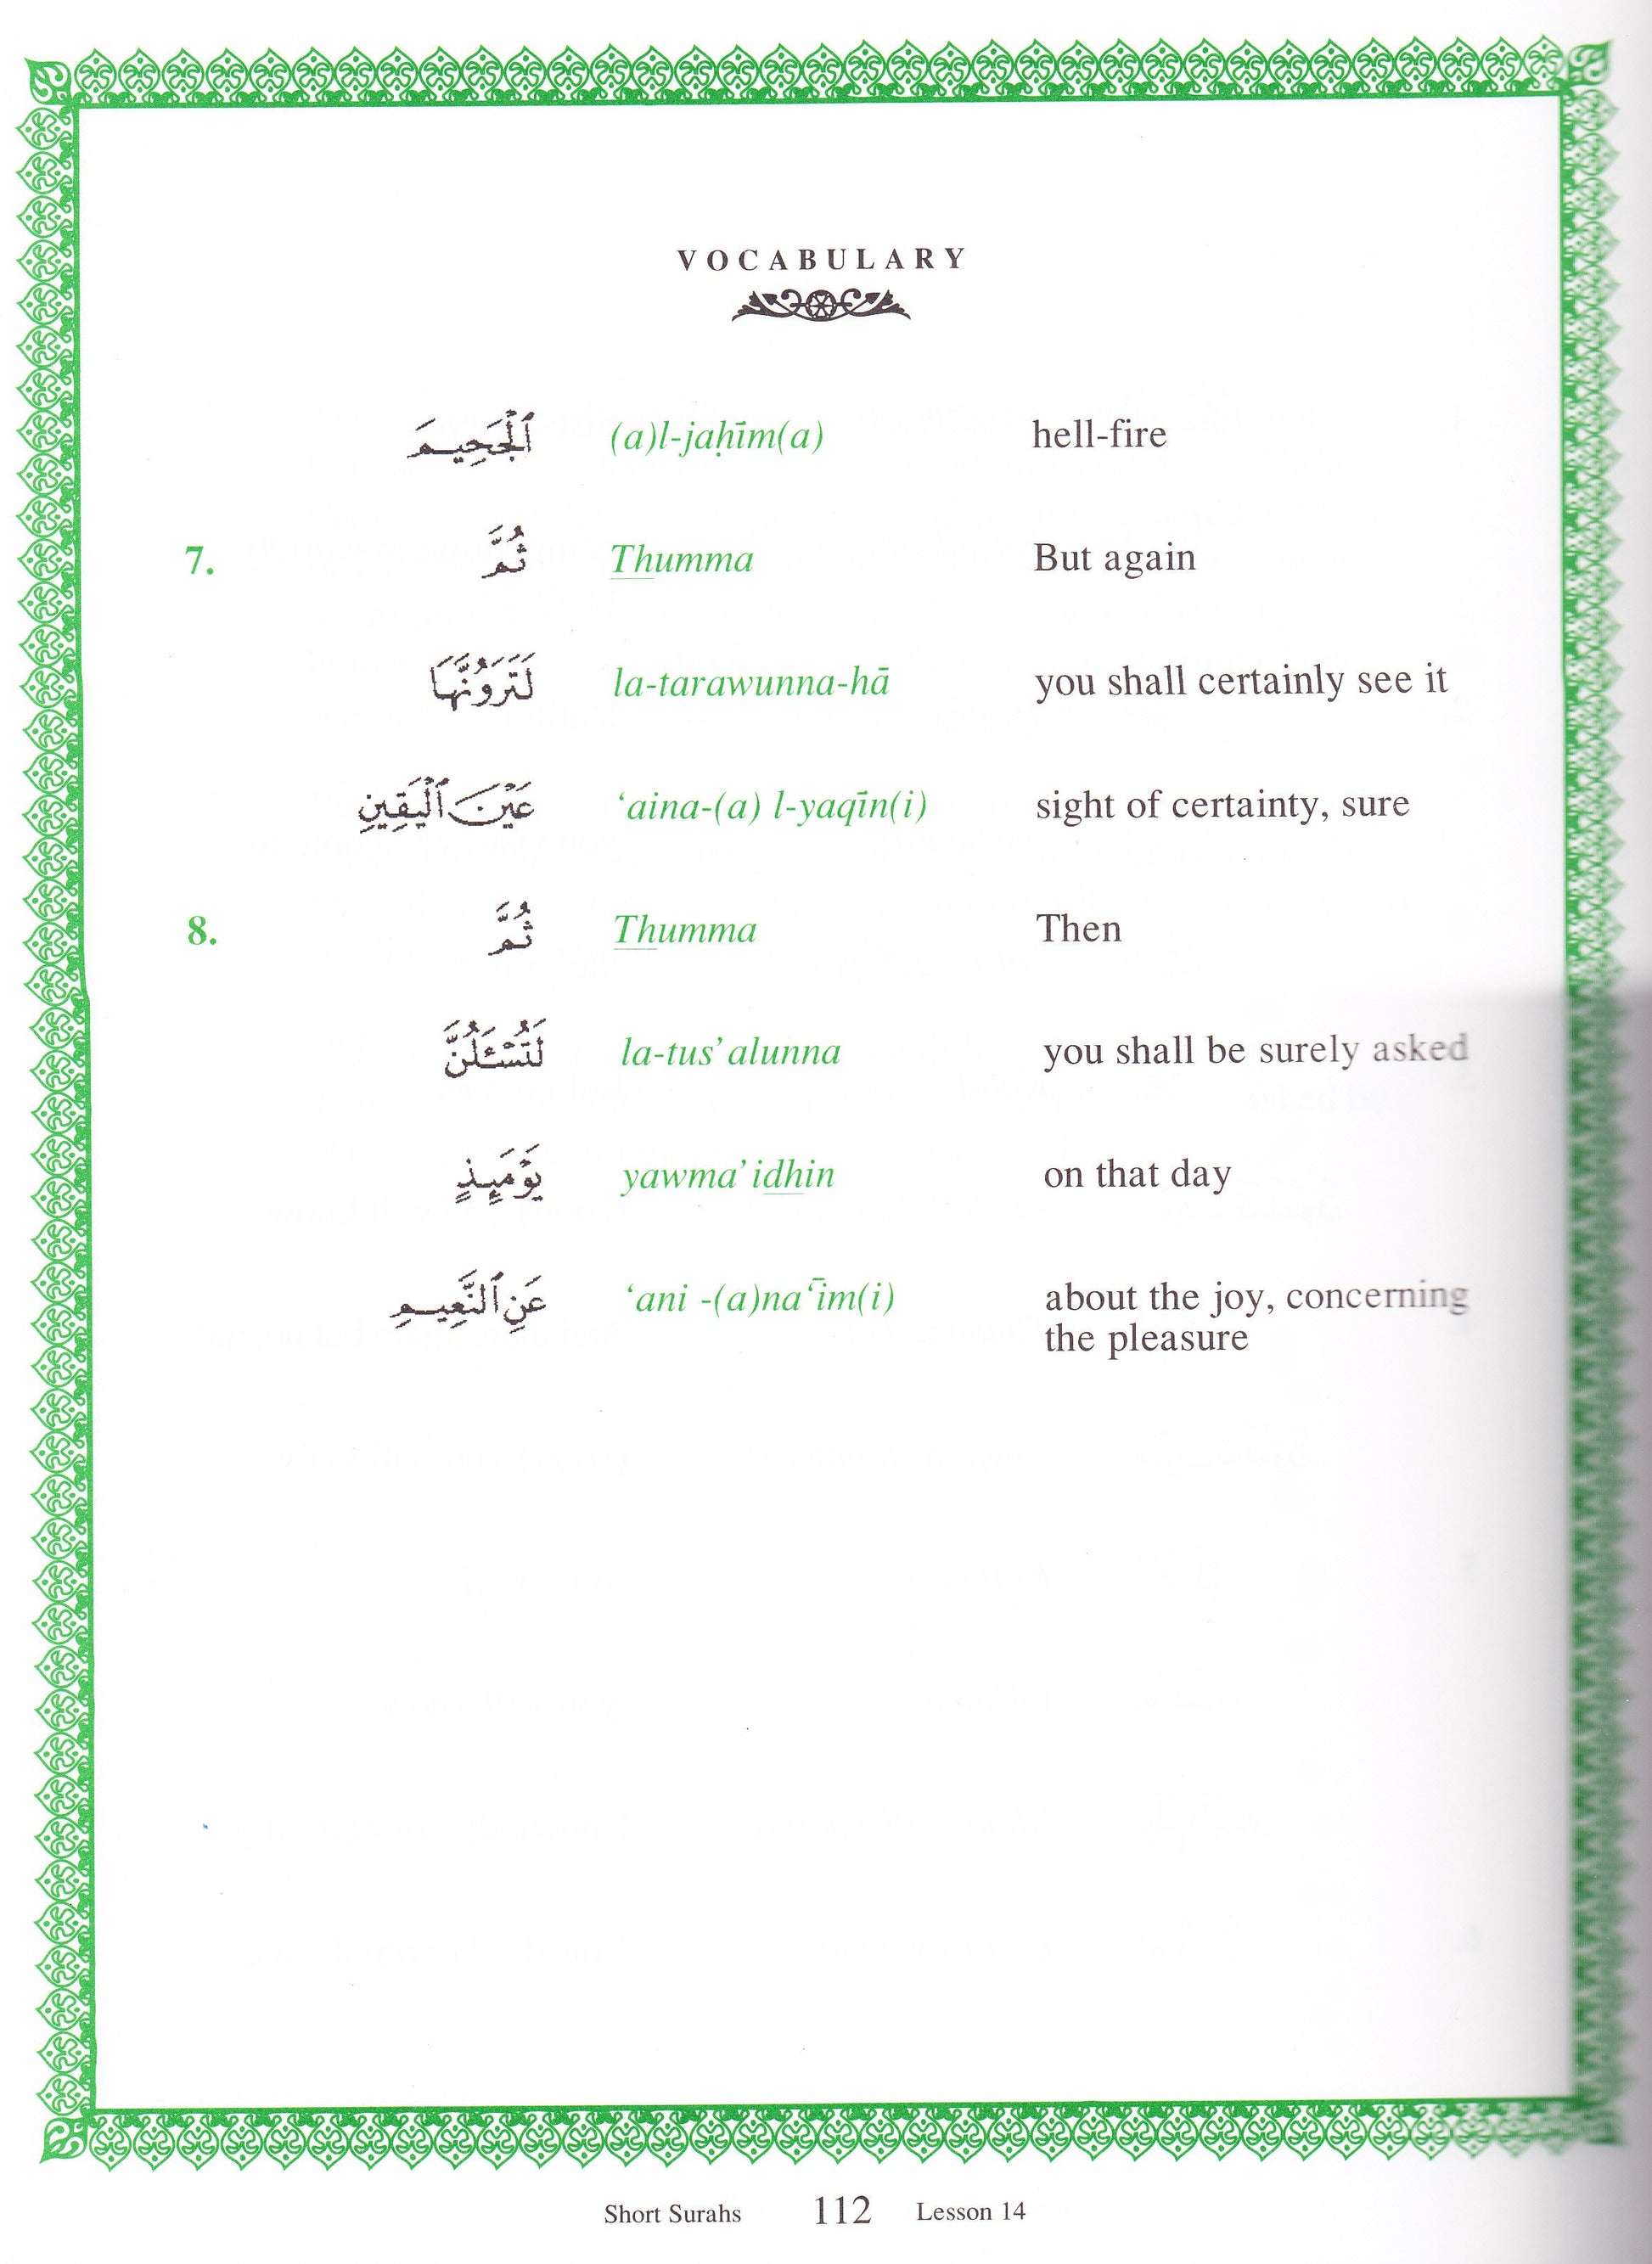 VOCABULARY
ٱلْجَحِيمَ (a)l-jaḥīm(a) hell-fire
7. ثُمَّ Thumma But again
لَتَرَوُنَّهَا la-tarawunna-hā you shall certainly see it
عَيْنَ ٱلْيَقِينِ ‘aina-(a) l-yaqīn(i) sight of certainty, sure
8. ثُمَّ Thumma Then
لَتُسْـَٔلُنَّ la-tus’alunna you shall be surely asked
يَوْمَئِذٍ yawma’idhin on that day
عَنِ ٱلنَّعِيمِ ‘ani -(a)na‘īm(i) about the joy, concerning
the pleasure
Short Surahs 112 Lesson 14